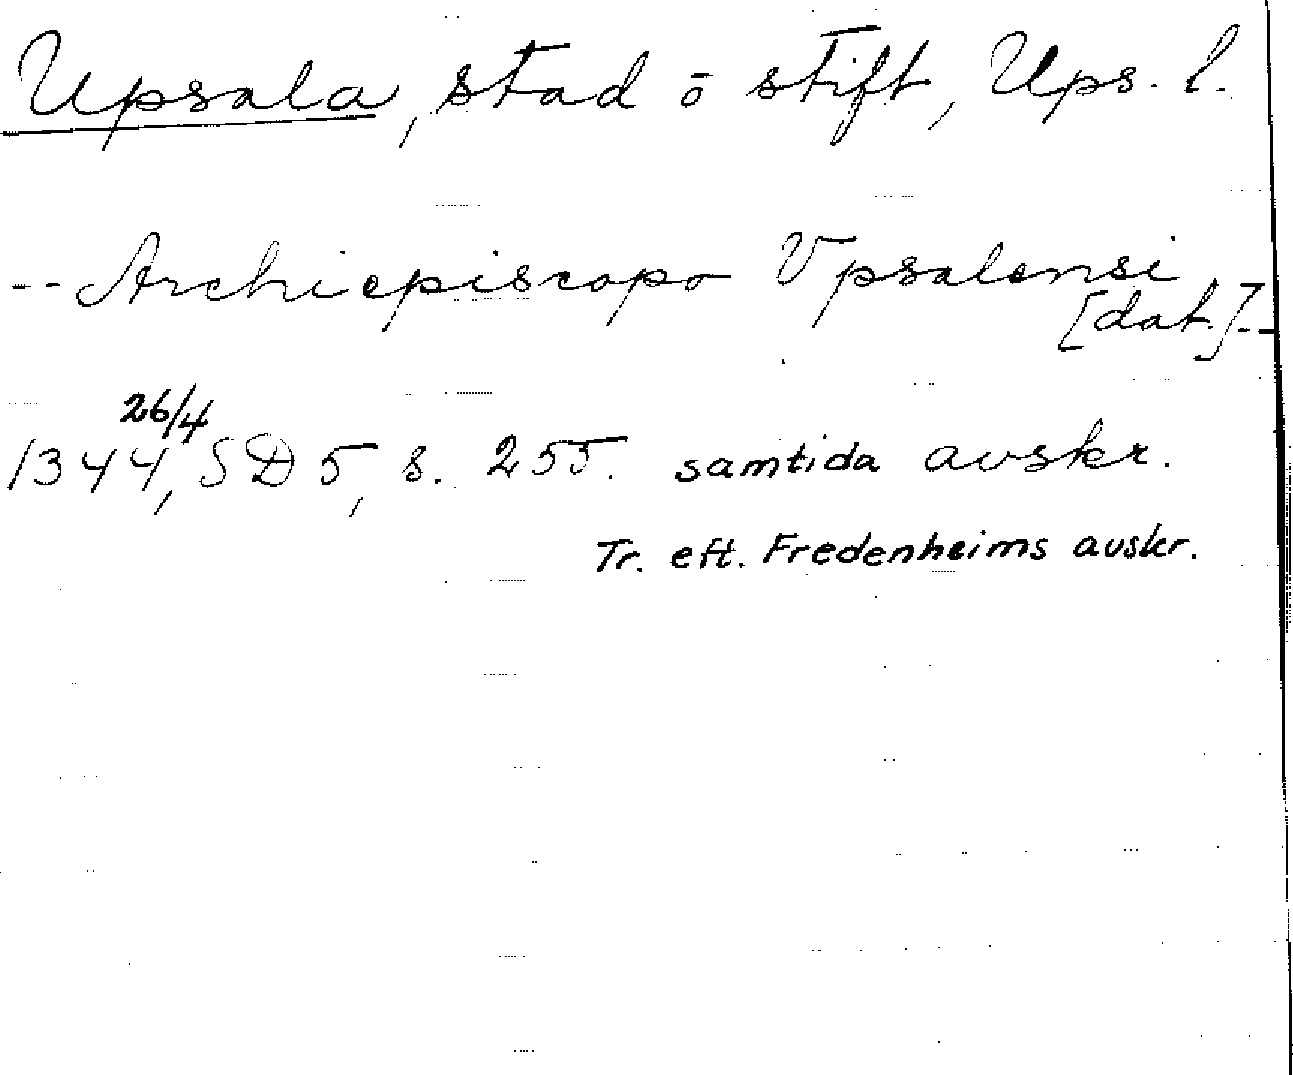 Upsala, stad ō stift, Ups. l.
-- Archiepiscopo Vpsalensi
[dat.] --
26/4
1344, SD 5, s. 255. samtida avskr.
Tr. eft. Fredenheims avskr.